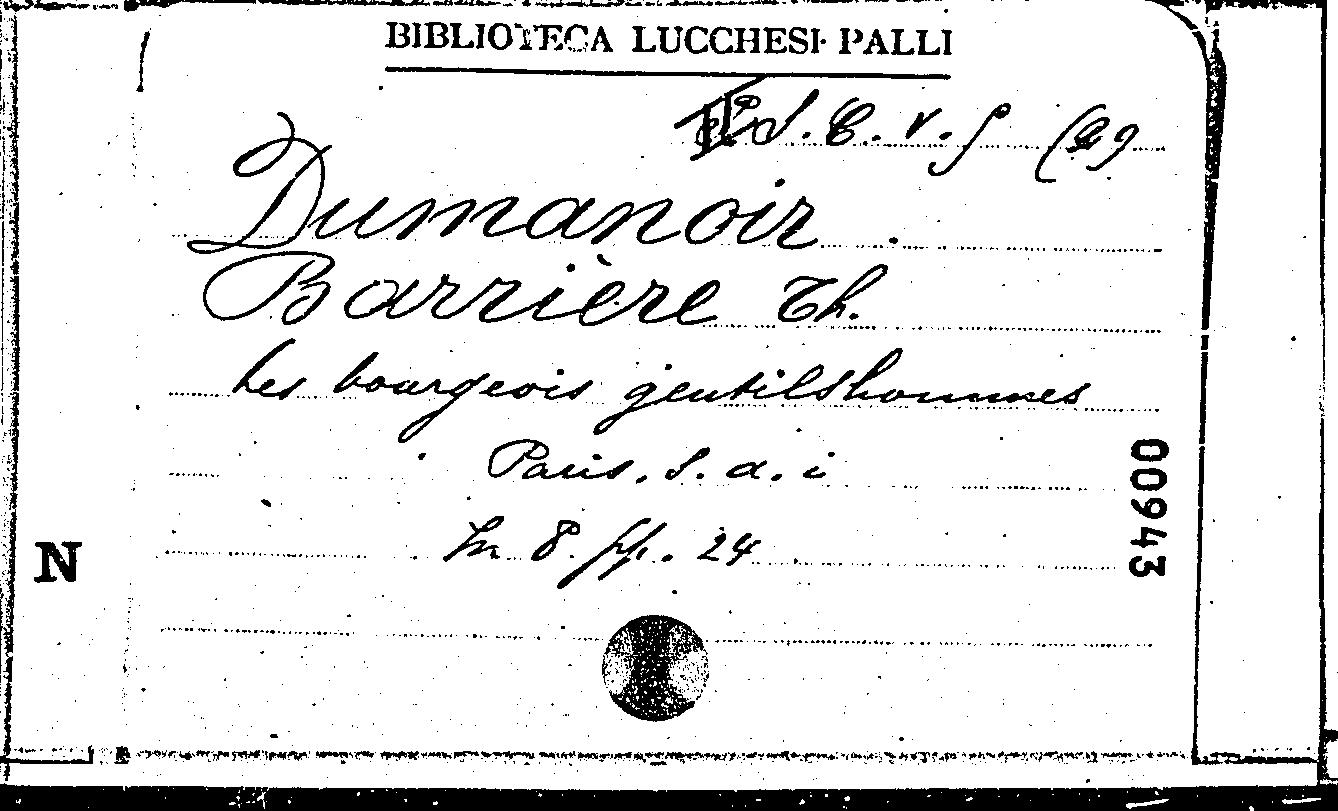 BIBLIOTECA LUCCHESI-PALLI
S. C. v. 9
Dumanoir
Barrière Th.
Les bourgeois gentilshommes
Paris. s. a. i
In 8. pp. 24
00943
N